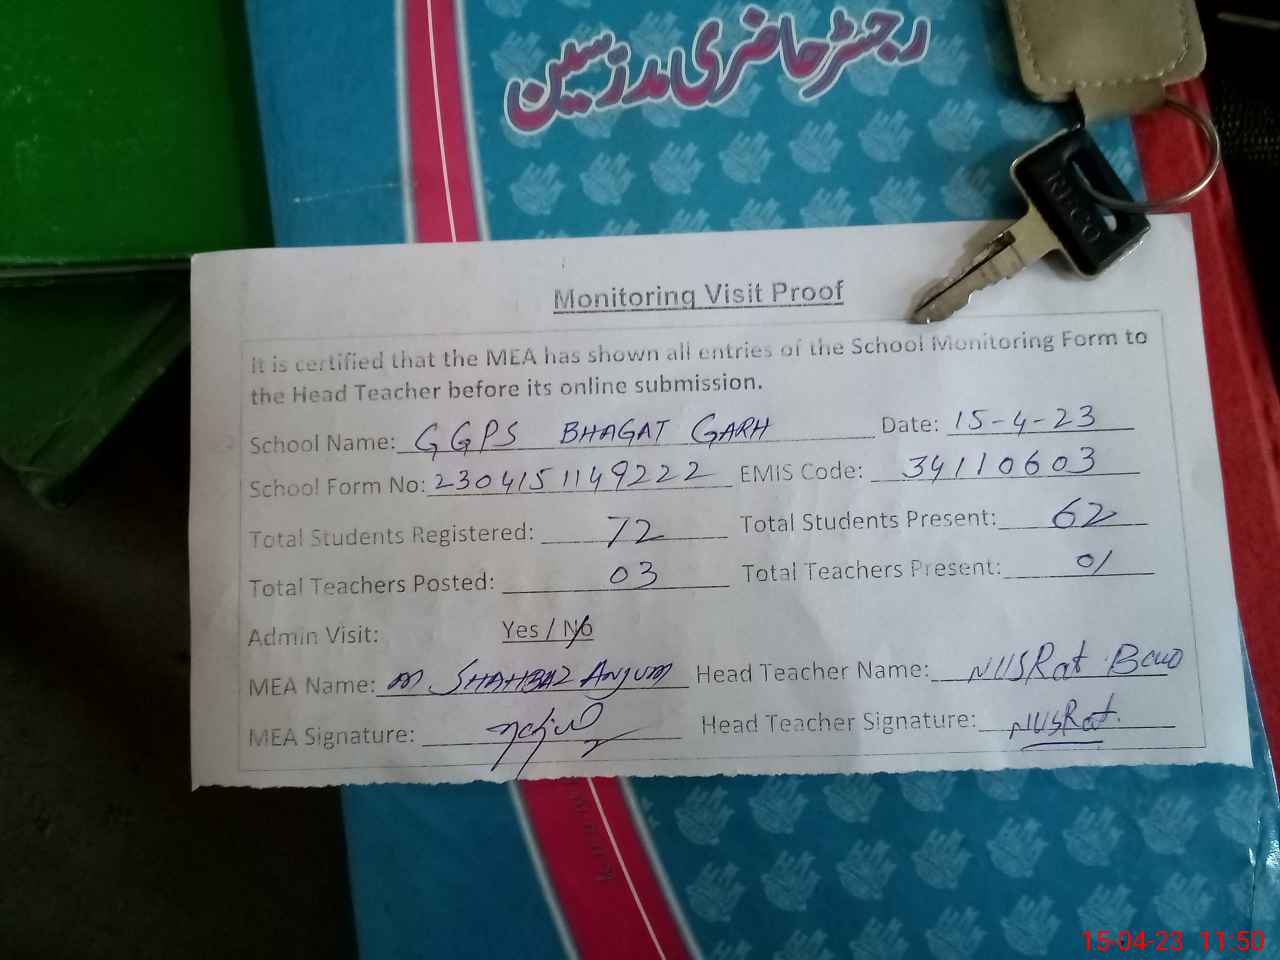 رجسٹر حاضری مدرسین
Monitoring Visit Proof
It is certified that the MEA has shown all entries of the School Monitoring Form to
the Head Teacher before its online submission.
School Name: GGPS BHAGAT GARH Date: 15-4-23
School Form No: 2304151149222 EMIS Code: 34110603
Total Students Registered: 72 Total Students Present: 62
Total Teachers Posted: 03 Total Teachers Present: 01
Admin Visit: Yes / No
MEA Name: M. SHAHBAZ ANJUM Head Teacher Name: NUSRat Bano
MEA Signature: Head Teacher Signature: NUSRat.
15-04-23 11:50